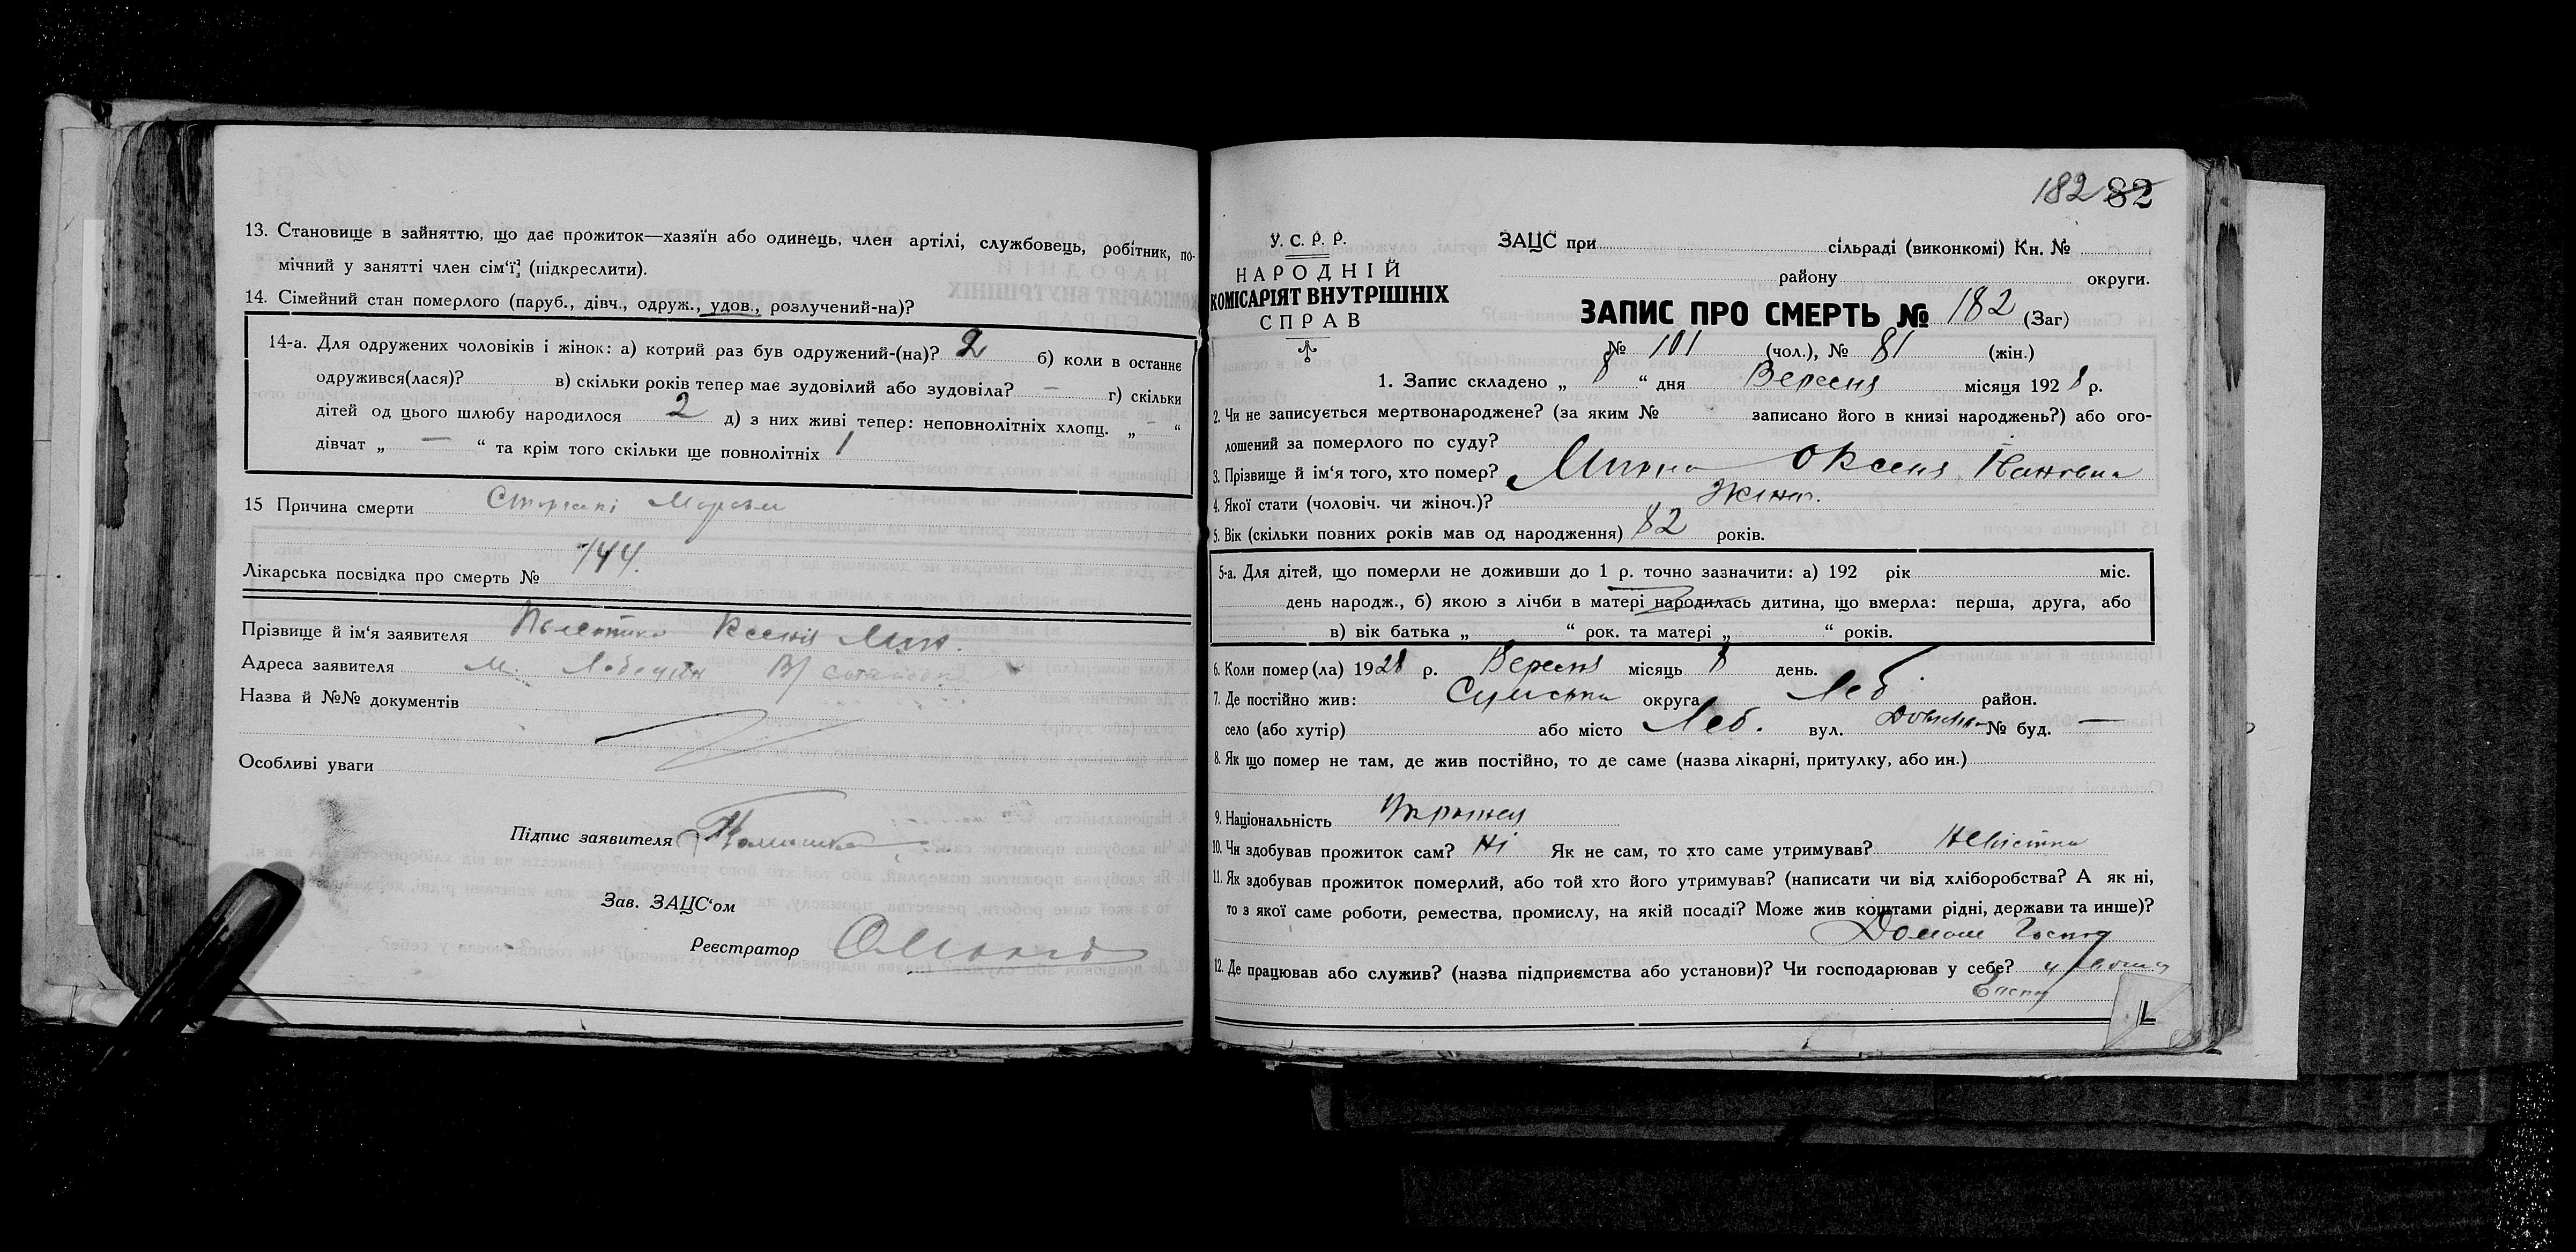 13. Становище в зайняттю, що дає прожиток—хазяїн або одинець, член артілі, службовець, робітник, по-
мічний у занятті член сім'ї (підкреслити).
14. Сімейний стан померлого (паруб., дівч., одруж., удов., розлучений-на)?
14-а. Для одружених чоловіків і жінок: а) котрий раз був одружений-(на)? 2 б) коли в останнє
одружився(лася)? в) скільки років тепер має зудовілий або зудовіла? — г) скільки
дітей од цього шлюбу народилося 2 д) з них живі тепер: неповнолітніх хлопц. „ — “
дівчат „ — “ та крім того скільки ще повнолітніх 1
15 Причина смерти
Лікарська посвідка про смерть № 744.
Прізвище й ім'я заявителя
Адреса заявителя м. Лебедин
Назва й №№ документів
Особливі уваги
Підпис заявителя
Зав. ЗАЦС'ом
Реєстратор
182 82
У. С. Р. Р.
НАРОДНІЙ
КОМІСАРІЯТ ВНУТРІШНІХ
СПРАВ
ЗАЦС при сільраді (виконкомі) Кн. №
району округи.
ЗАПИС ПРО СМЕРТЬ № 182 (Заг)
№ 101 (чол.), № 81 (жін.)
1. Запис складено „ 8 “ дня Вересня місяця 1928 р.
2. Чи не записується мертвонароджене? (за яким № записано його в книзі народжень?) або ого-
лошений за померлого по суду?
3. Прізвище й ім'я того, хто помер? Оксеня
4. Якої стати (чоловіч. чи жіноч.)? Жіноч.
5. Вік (скільки повних років мав од народження) 82 років.
5-а. Для дітей, що померли не доживши до 1 р. точно зазначити: а) 192 рік міс.
день народж., б) якою з лічби в матері народилась дитина, що вмерла: перша, друга, або
в) вік батька „ “ рок. та матері „ “ років.
6. Коли помер (ла) 1928 р. Вересня місяць 8 день.
7. Де постійно жив: Сумська округа Леб район.
село (або хутір) або місто Леб. вул. № буд. —
8. Як що помер не там, де жив постійно, то де саме (назва лікарні, притулку, або ин.)
9. Національність
10. Чи здобував прожиток сам? Ні Як не сам, то хто саме утримував? Невістка
11. Як здобував прожиток померлий, або той хто його утримував? (написати чи від хліборобства? А як ні,
то з якої саме роботи, ремества, промислу, на якій посаді? Може жив коштами рідні, держави та инше)?
Домаш Господ
12. Де працював або служив? (назва підприємства або установи)? Чи господарював у себе?